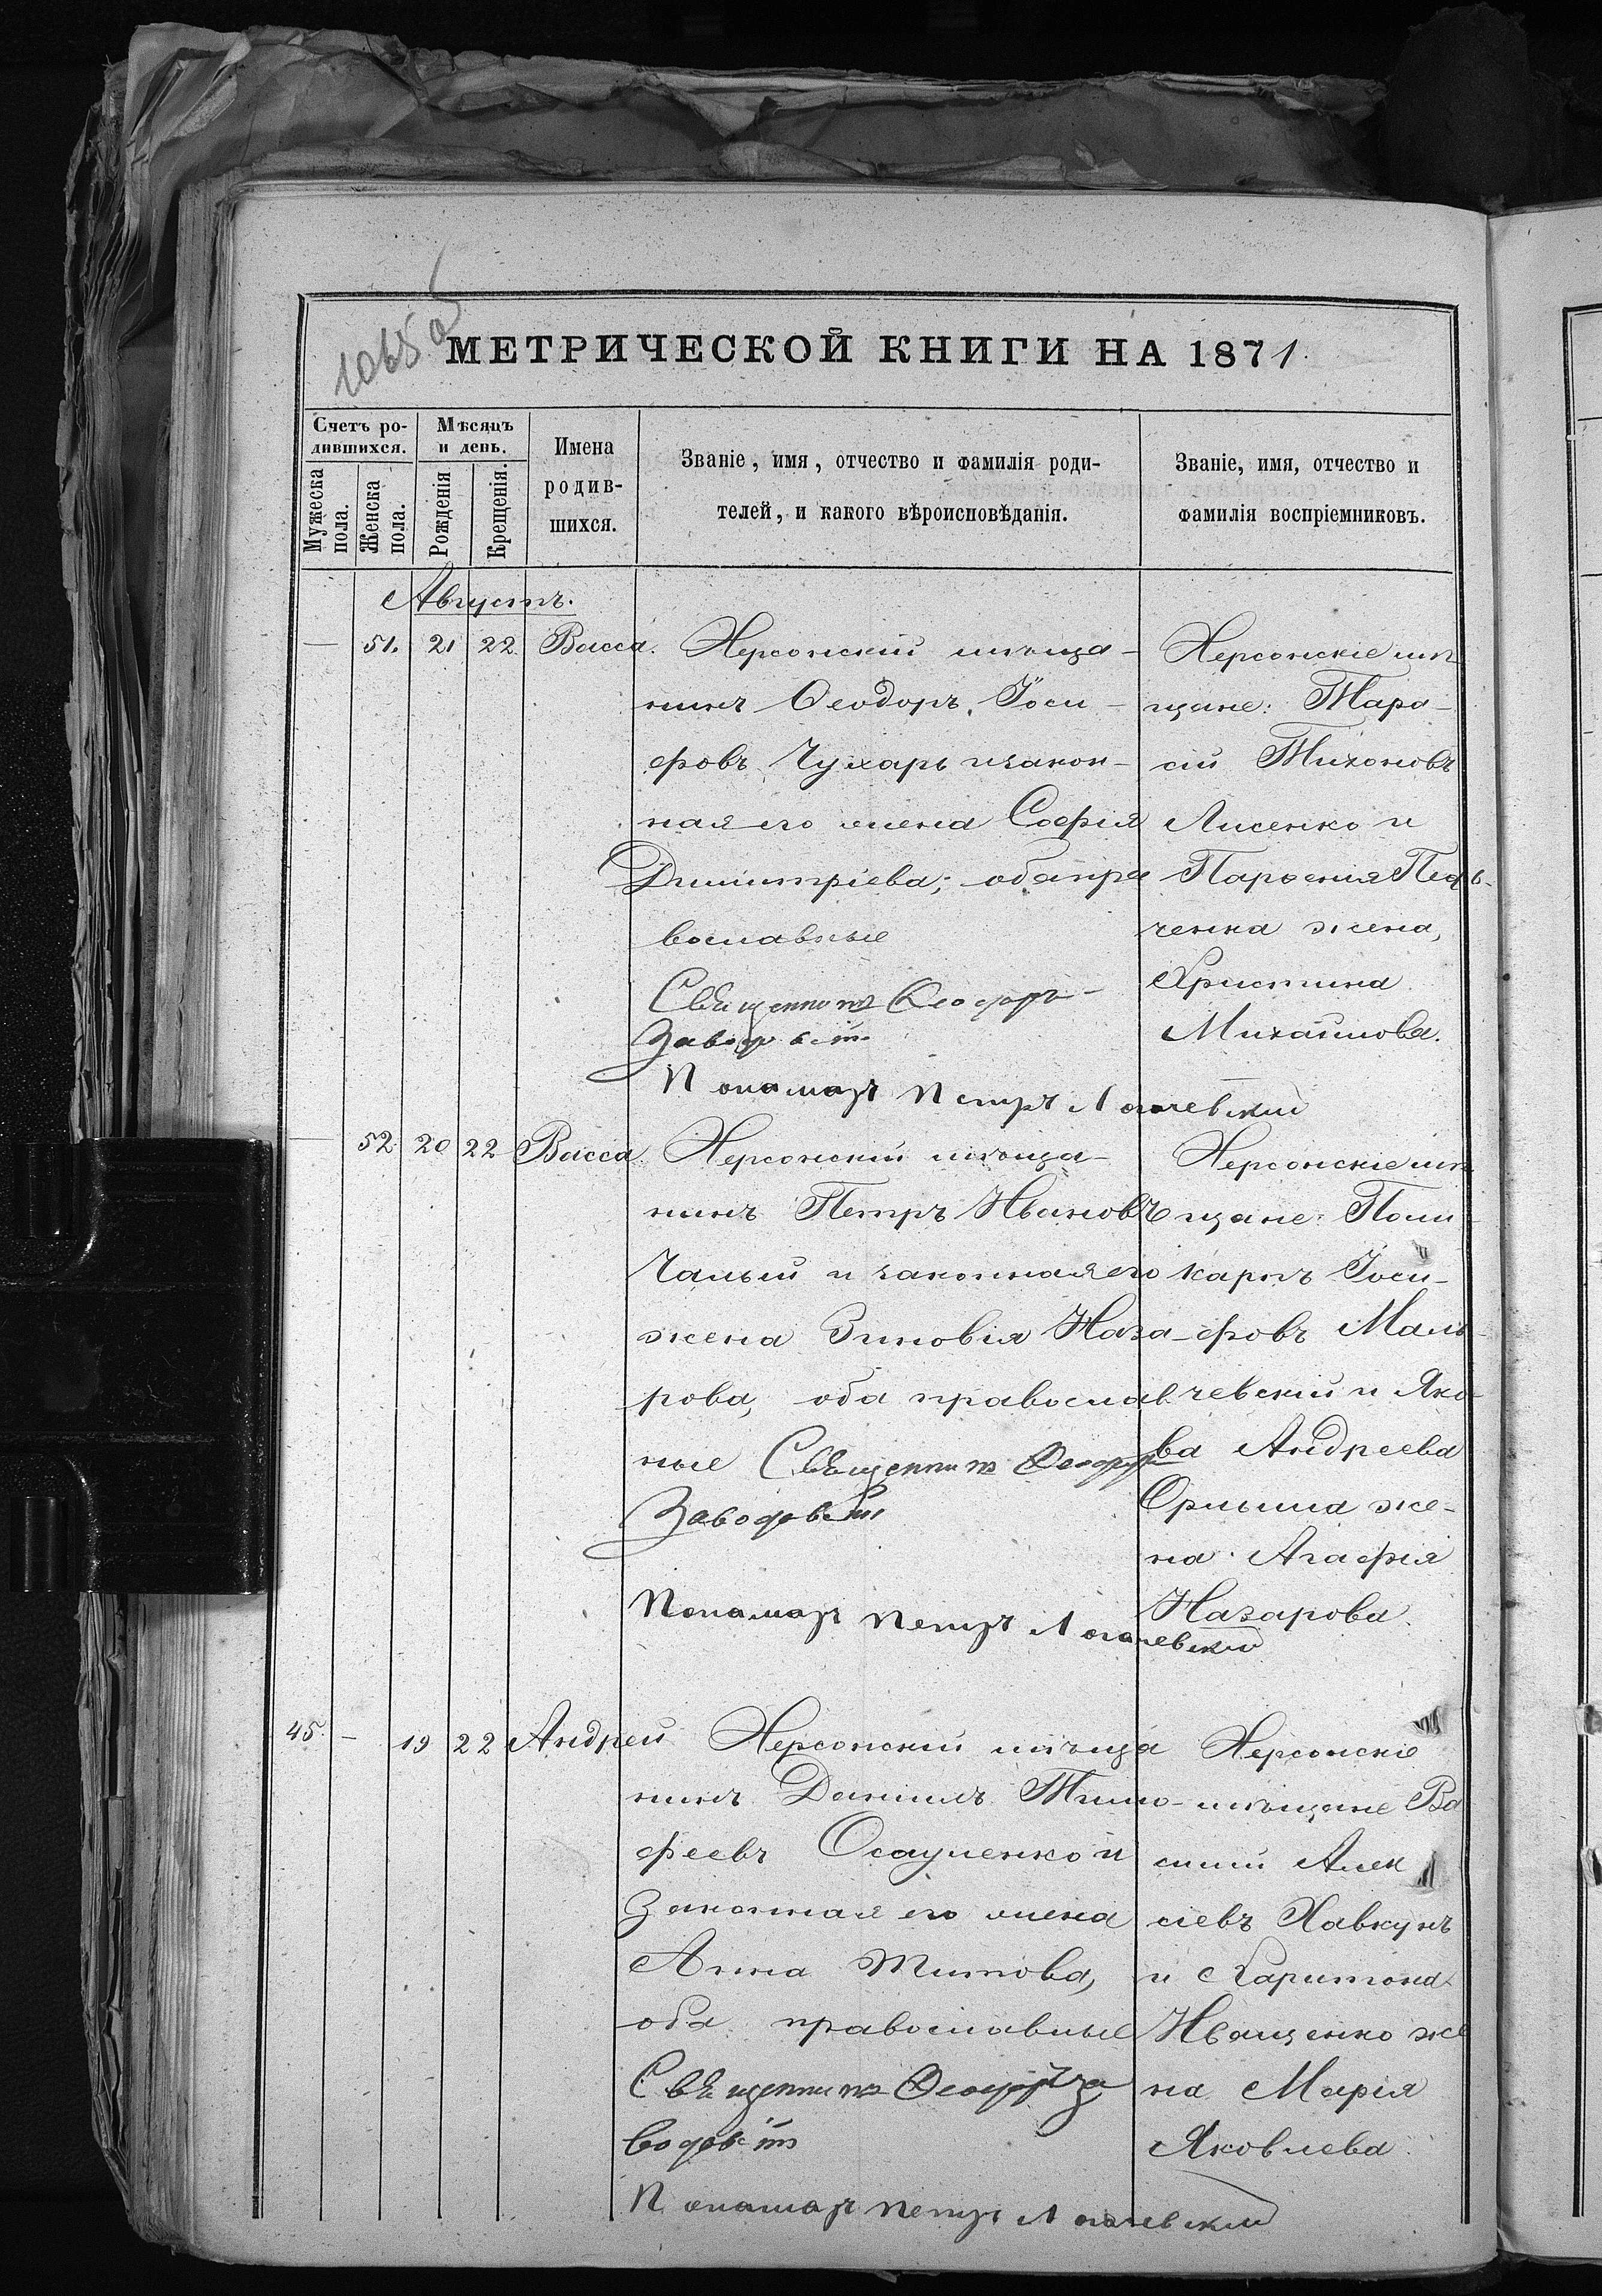 1065 об
МЕТРИЧЕСКОЙ КНИГИ НА 1871.
Счетъ ро-
дившихся.
Мужеска пола.
Женска пола.
Мѣсяцъ
и день.
Рожденія
Крещенія.
Имена
родив-
шихся.
Званіе, имя, отчество и фамилія роди-
телей, и какого вѣроисповѣданія.
Званіе, имя, отчество и
фамилія воспріемниковъ.
Августъ.
— 51. 21 22 Васса.
Херсонскій мѣща-
нинъ Ѳеодоръ Іоси-
фовъ Чухарь и закон-
ная его жена Софія
Димитріева; оба пра
вославные
Священникъ Ѳеодоръ
Заводовскій
Пономарь Петръ Логачевскій
Херсонскіе мѣ
щане: Тара-
сій Тихоновъ
Лисенко и
Парѳенія
ченка жена,
Христина
Михайлова.
— 52. 20 22 Васса
Херсонскій мѣща-
нинъ Петръ Ивановъ
Чалый и законная его
жена Зиновія Наза-
рова, оба православ
ные Священникъ Ѳеодоръ
Заводовскій
Пономарь Петръ Логачевскій
Херсонскіе мѣ
щане: Поли-
карпъ Іоси-
фовъ Маль-
чевскій и Яко
ва Андреева
же-
на Агафія
Назарова.
45. — 19 22 Андрей
Херсонскій мѣща
нинъ Даніилъ Тимо-
феевъ Осауленко и
законная его жена
Анна Титова,
оба православные
Священникъ Ѳеодоръ За
водовскій
Пономарь Петръ Логачевскій
Херсонскіе
мѣщане Ва
силій Алек
сіевъ Хавкунъ
и Харитона
Иващенко же
на Марія
Яковлева.